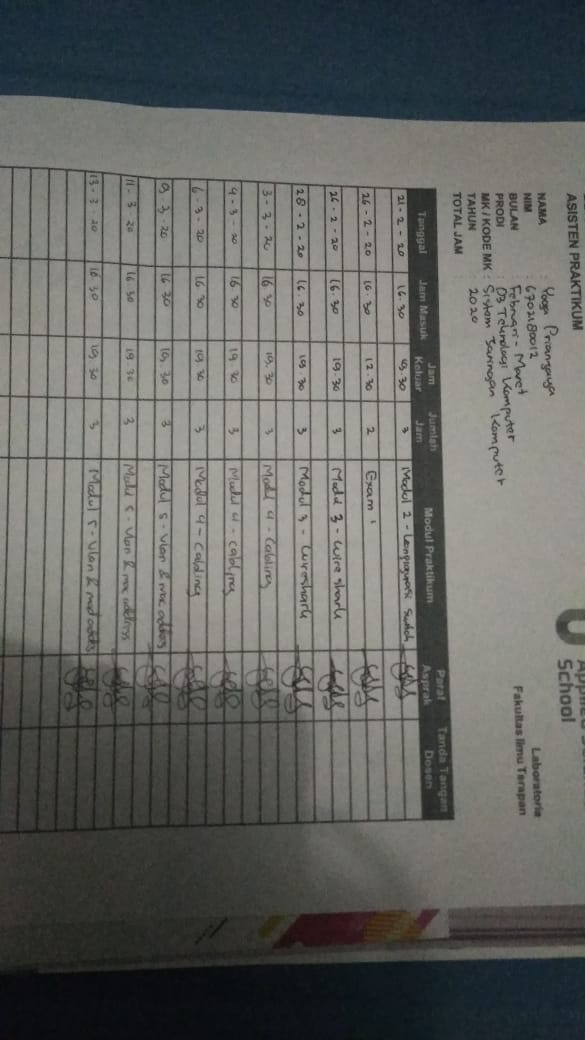 School
Laboratoria
Fakultas Ilmu Terapan
ASISTEN PRAKTIKUM
NAMA : Yoga
NIM : 6702180012
BULAN : Februari - Maret
PRODI : D3 Teknologi Komputer
MK / KODE MK : Sistem Jaringan Komputer
TAHUN : 2020
TOTAL JAM
Tanggal Jam Masuk Jam Keluar Jumlah Jam Modul Praktikum Paraf Asprak Tanda Tangan Dosen
21 - 2 - 20 16.30 19.30 3 Modul 2 -
26 - 2 - 20 10.30 12.30 2 Exam
26 - 2 - 20 16.30 19.30 3 Modul 3 - Wireshark
28 - 2 - 20 16.30 19.30 3 Modul 3 - Wireshark
3 - 3 - 20 16.30 19.30 3 Modul 4 - Cabling
4 - 3 - 20 16.30 19.30 3 Modul 4 - Cabling
6 - 3 - 20 16.30 19.30 3 Modul 4 - Cabling
9 - 3 - 20 16.30 19.30 3 Modul 5 - Vlan & mac address
11 - 3 - 20 16.30 19.30 3 Modul 5 - Vlan & mac address
13 - 3 - 20 16.30 19.30 3 Modul 5 - Vlan & mac address